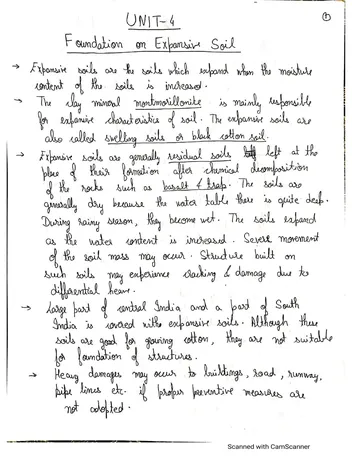 ①
UNIT-4
Foundation on Expansive Soil
→ Expansive soils are the soils which expand when the moisture
content of the soils is increased.
→ The clay mineral montmorillonite is mainly responsible
for expansive characteristics of soil. The expansive soils are
also called swelling soils or black cotton soil.
→ Expansive soils are generally residual soils left at the
place of their formation after chemical decomposition
of the rocks such as basalt & trap. The soils are
generally dry because the water table there is quite deep.
During rainy season, they become wet. The soils expand
as the water content is increased. Severe movement
of the soil mass may occur. Structure built on
such soils may experience cracking & damage due to
differential heave.
→ Large part of central India and a part of South
India is covered with expansive soils. Although these
soils are good for growing cotton, they are not suitable
for foundation of structures.
→ Heavy damages may occur to buildings, road, runway,
pipe lines etc. if proper preventive measures are
not adopted.
Scanned with CamScanner